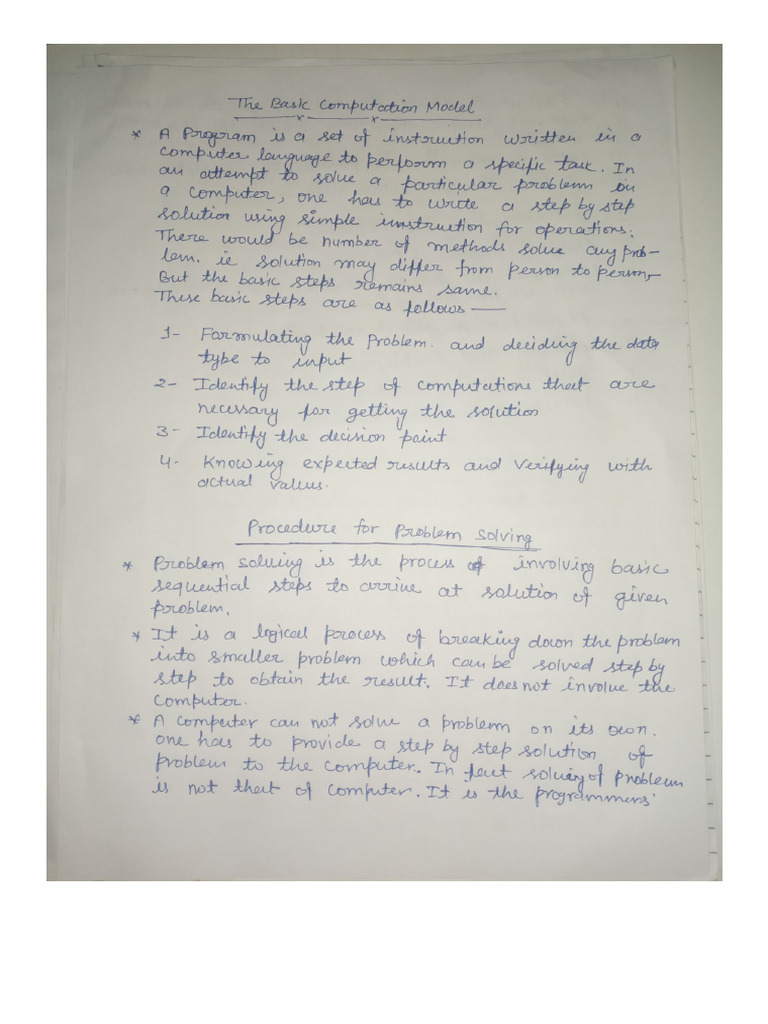 The Basic Computation Model
* A Program is a set of instruction written in a
computer language to perform a specific task. In
an attempt to solve a particular problem on
a computer, one has to write a step by step
solution using simple instruction for operations.
There would be number of methods solve any prob-
lem. ie solution may differ from person to person,
But the basic steps remains same.
These basic steps are as follows —
1- Formulating the Problem. and deciding the data
type to input
2- Identify the step of computations that are
necessary for getting the solution
3- Identify the decision point
4- Knowing expected results and verifying with
actual values.
Procedure for Problem Solving
* Problem solving is the process of involving basic
sequential steps to arrive at solution of given
problem.
* It is a logical process of breaking down the problem
into smaller problem which can be solved step by
step to obtain the result. It does not involve the
computer.
* A computer can not solve a problem on its own.
one has to provide a step by step solution of
problem to the computer. In fact solving of problem
is not that of computer. It is the programmers'